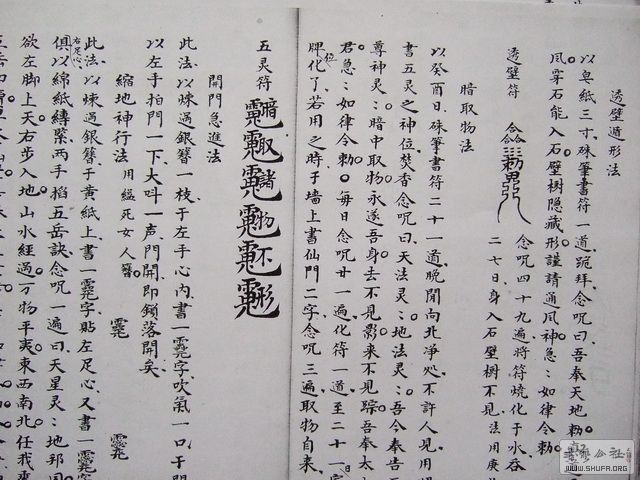 透壁遁形法
以皂紙三寸硃筆書符一道跪拜念咒曰吾奉天地勅
風穿石能入石壁樹隐藏形謹請通風神急如律令勅
透壁符
念咒四十九遍将符燒化于水吞
二七日身入石壁樹不見法用庚
暗取物法
以癸酉日硃筆書符二十一道晚間向北凈処不許人見用
書五灵之神位焚香念咒曰天法灵地法灵吾今奉告
尊神灵暗中取物永遂吾身去不見影来不見踪吾奉太
君急如律令勅每日念咒廿一遍化符一道至二十一日
牌位化了若用之時于墙上書仙門二字念咒三遍取物自来
五灵符
暗取諸物不形
開門急進法
此法以煉過銀簪一枝于左手心内書一字吹氣一口于門
以左手拍門一下大呌一声門開即鎖落開矣
縮地神行法
用縊死女人簪
此法以煉過銀簪于黄紙上書一字貼左足心又書一字
右足心
俱以綿紙縳緊两手掐五岳訣念咒一遍曰天星灵地
欲左脚上天右步入地山水經過万物平夷東西南北任我
書法公社
WWW.SHUFA.ORG